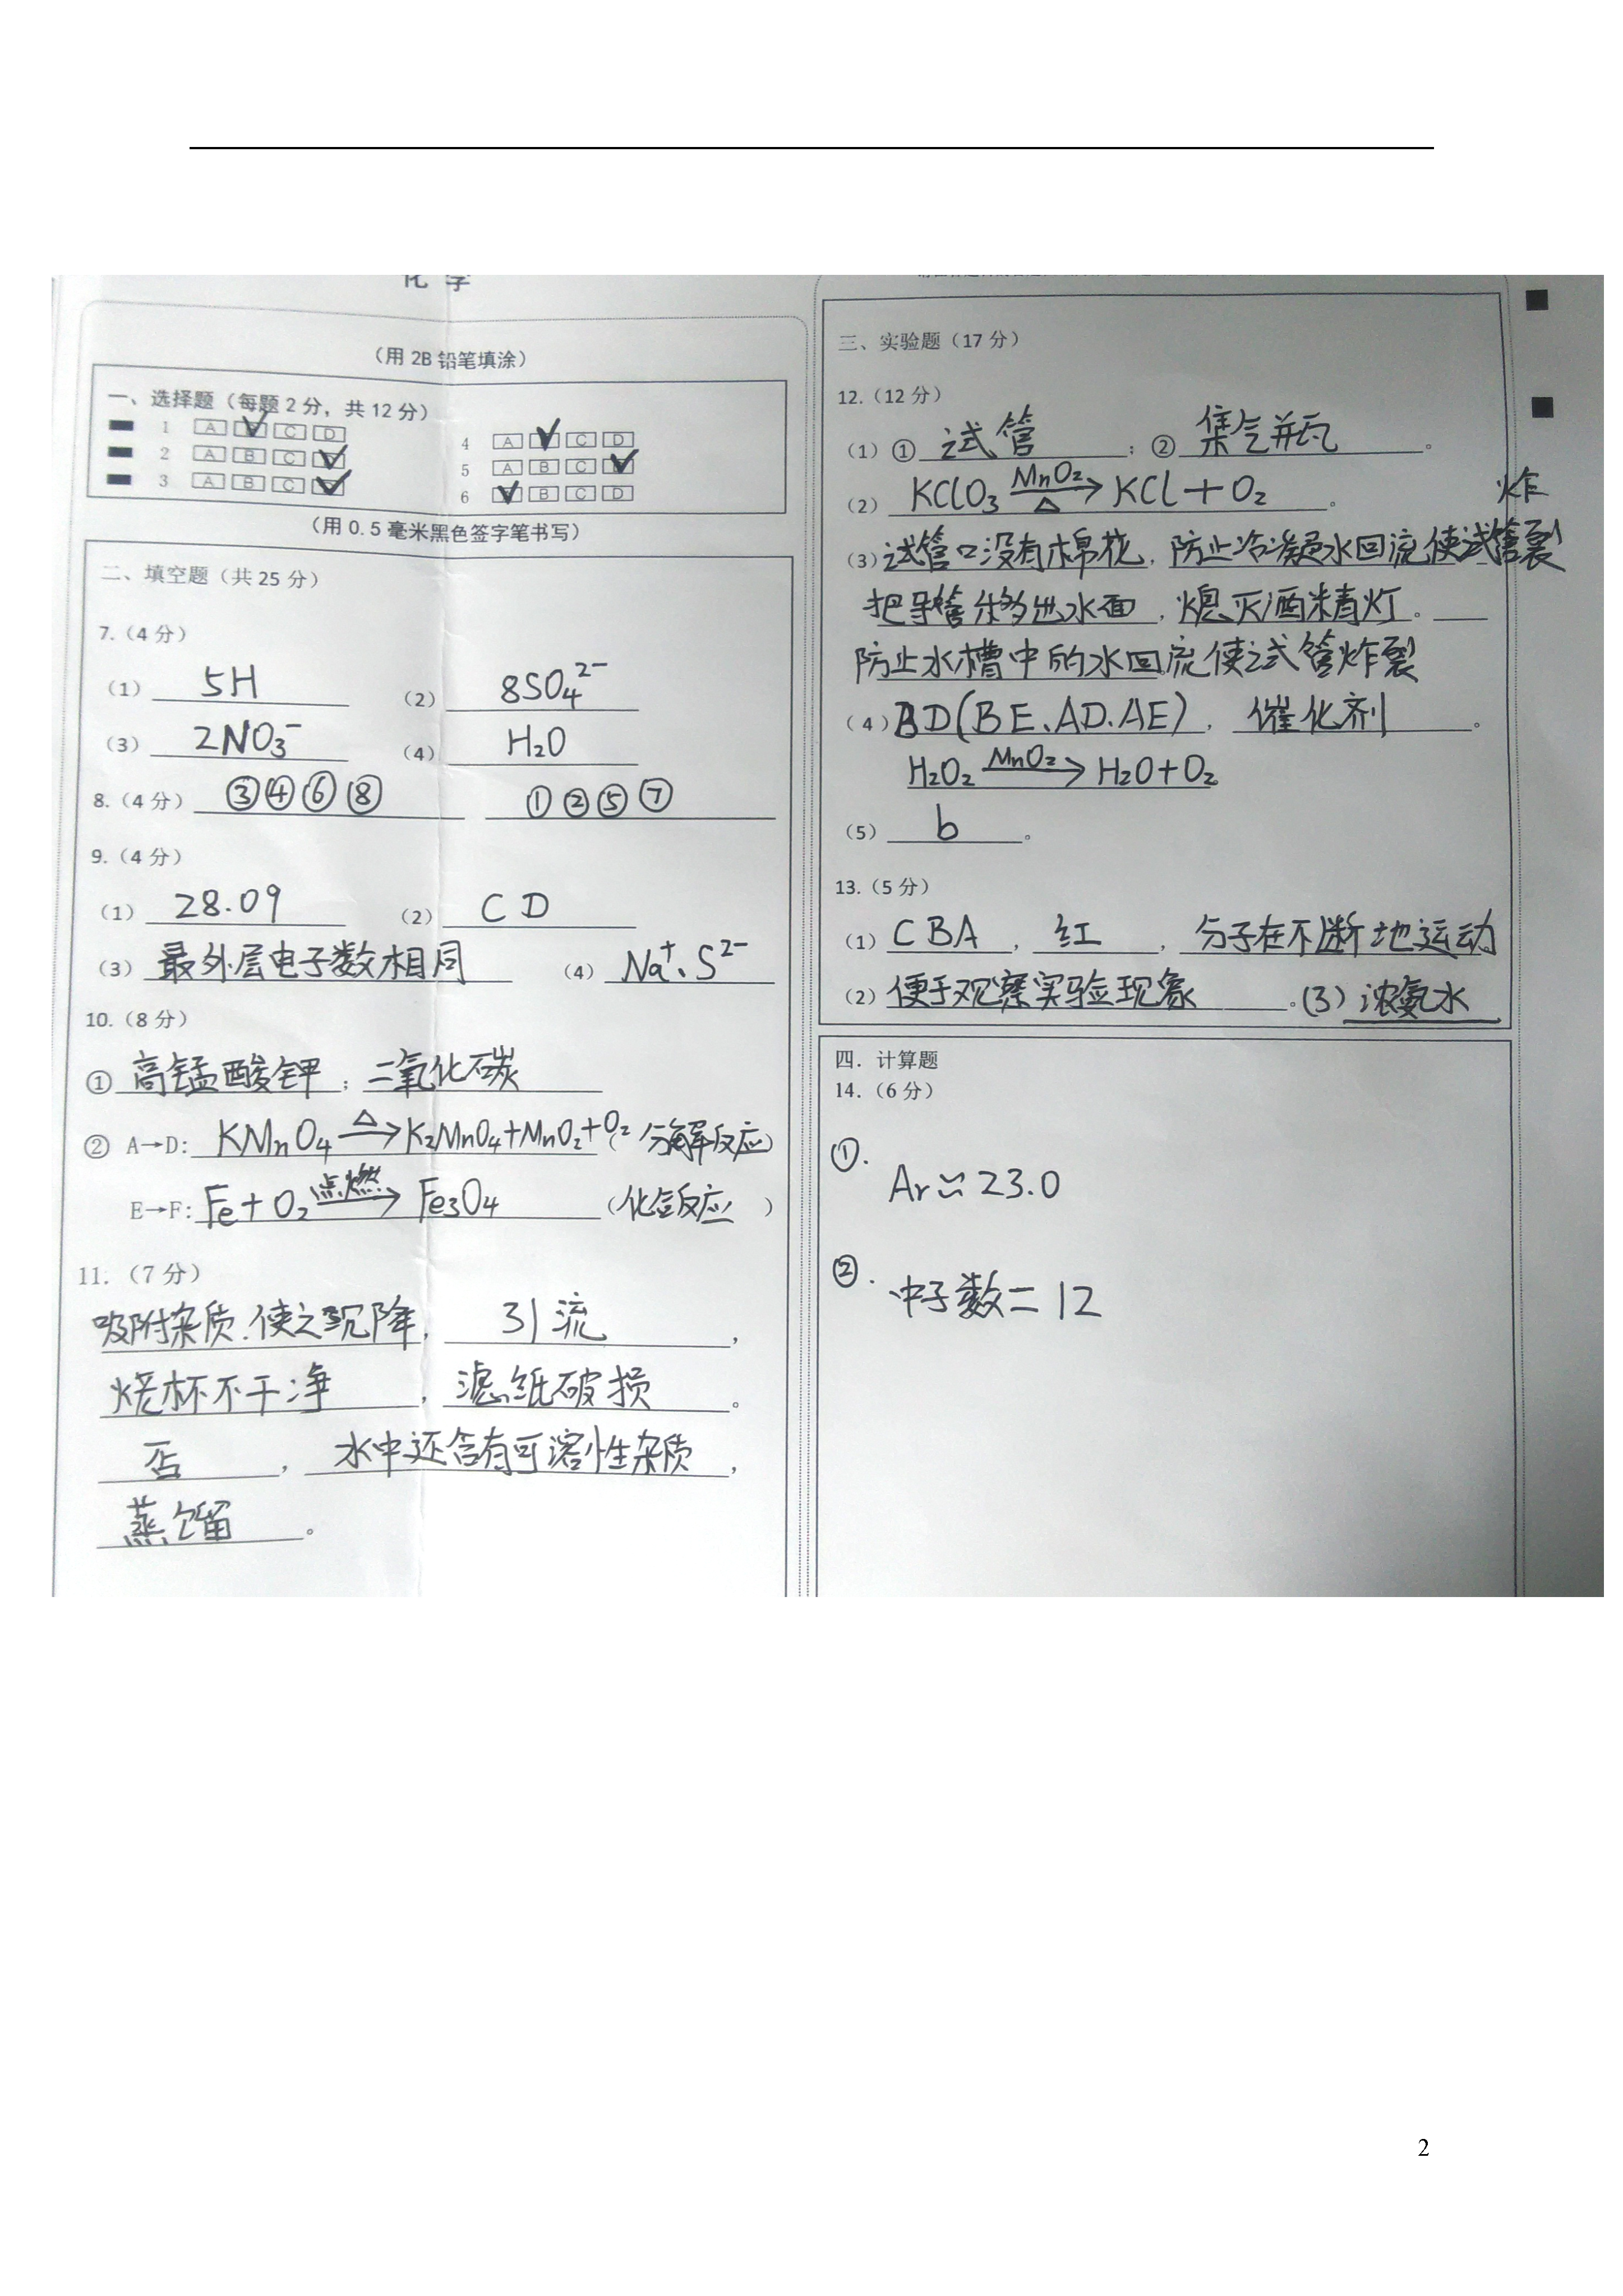 化 学
（用 2B 铅笔填涂）
一、选择题（每题 2 分，共 12 分）
1 A ✓ C D
2 A B C ✓
3 A B C ✓
4 A ✓ C D
5 A B C ✓
6 ✓ B C D
（用 0.5 毫米黑色签字笔书写）
二、填空题（共 25 分）
7.（4 分）
（1） 5H （2） 8SO₄²⁻
（3） 2NO₃⁻ （4） H₂O
8.（4 分） ③④⑥⑧ ①②⑤⑦
9.（4 分）
（1） 28.09 （2） C D
（3） 最外层电子数相同 （4） Na⁺、S²⁻
10.（8 分）
① 高锰酸钾 ； 二氧化碳
② A→D: KMnO₄ —△→ K₂MnO₄+MnO₂+O₂ （分解反应）
E→F: Fe+O₂ —点燃→ Fe₃O₄ （化合反应）
11.（7 分）
吸附杂质.使之沉降， 引流 ，
烧杯不干净 ， 滤纸破损 。
否 ， 水中还含有可溶性杂质 ，
蒸馏 。
三、实验题（17 分）
12.（12 分）
（1）① 试管 ；② 集气瓶 。
（2） KClO₃ —MnO₂/△→ KCl+O₂ 。
（3）试管口没有棉花，防止冷凝水回流使试管炸裂
把导管移出水面，熄灭酒精灯。
防止水槽中的水回流使试管炸裂
（4）BD(BE、AD.AE)， 催化剂 。
H₂O₂ —MnO₂→ H₂O+O₂
（5） b 。
13.（5 分）
（1） CBA ， 红 ， 分子在不断地运动
（2） 便于观察实验现象 。(3) 浓氨水
四．计算题
14.（6 分）
①. Ar≈23.0
②. 中子数=12
2